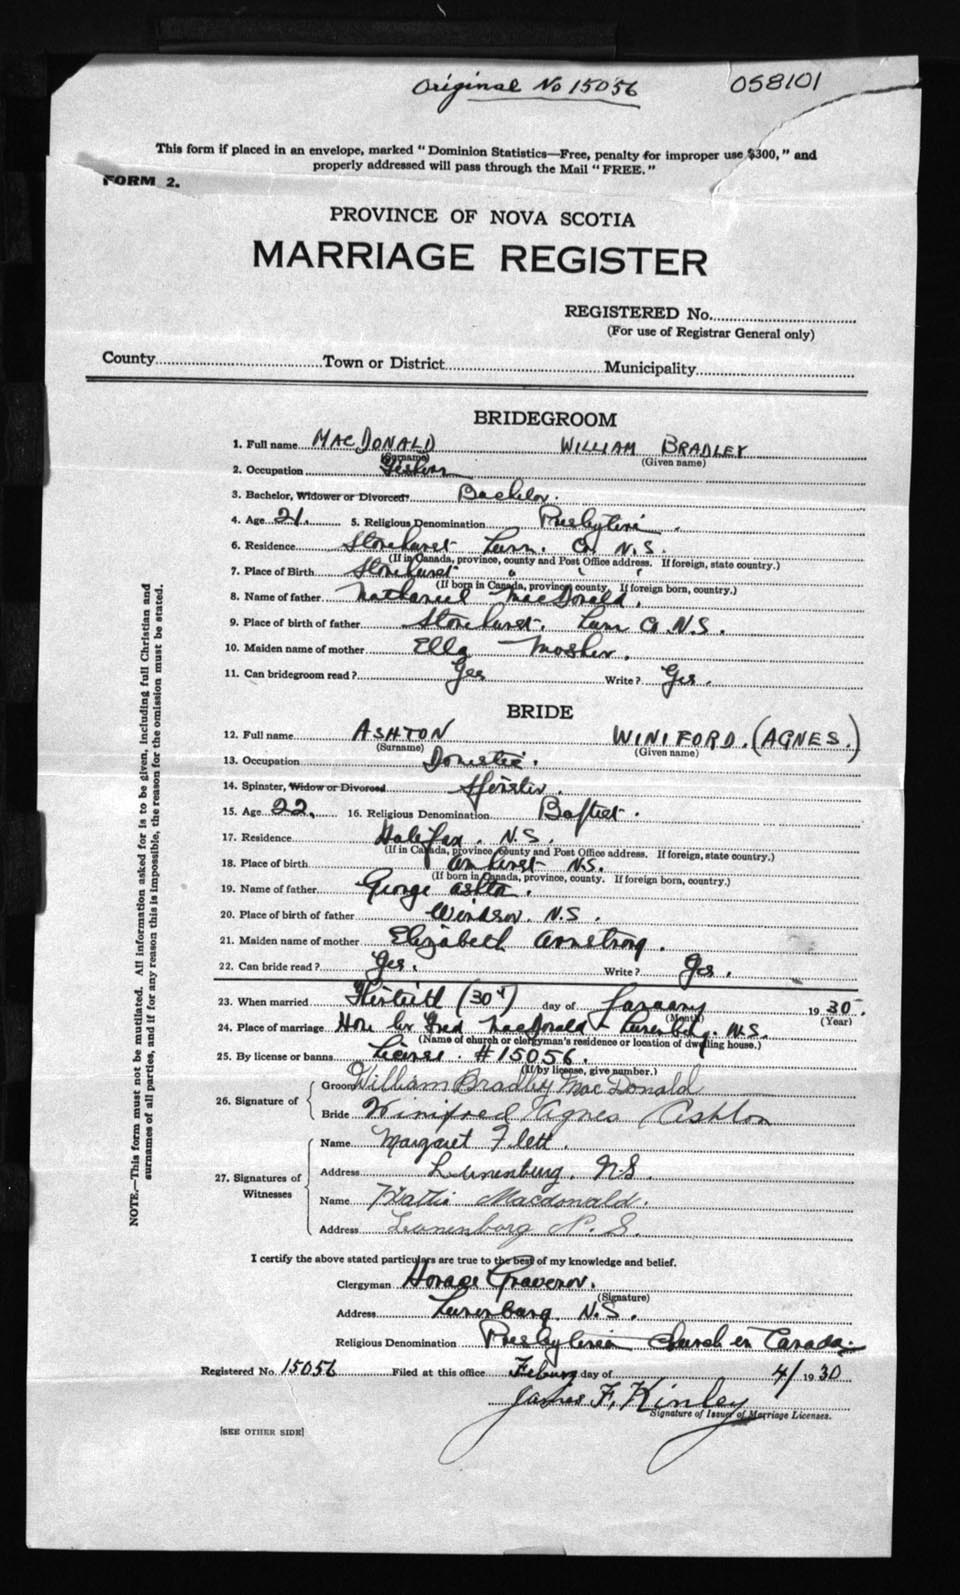 Original No 15056
058101
This form if placed in an envelope, marked "Dominion Statistics—Free, penalty for improper use $300," and
properly addressed will pass through the Mail "FREE."
FORM 2.
PROVINCE OF NOVA SCOTIA
MARRIAGE REGISTER
REGISTERED No.
(For use of Registrar General only)
County Town or District Municipality
BRIDEGROOM
1. Full name MACDONALD WILLIAM BRADLEY
(Surname) (Given name)
2. Occupation
3. Bachelor, Widower or Divorced? Bachelor.
4. Age 21. 5. Religious Denomination
6. Residence Stonehurst Lun. Co N.S.
(If in Canada, province, county and Post Office address. If foreign, state country.)
7. Place of Birth Stonehurst " " "
(If born in Canada, province county. If foreign born, country.)
8. Name of father Nathaniel MacDonald.
9. Place of birth of father Stonehurst. Lun Co N.S.
10. Maiden name of mother Ella Mosher.
11. Can bridegroom read? Yes Write? Yes.
BRIDE
12. Full name ASHTON WINIFORD. (AGNES.)
(Surname) (Given name)
13. Occupation Domestic.
14. Spinster, Widow or Divorced Spinster.
15. Age 22. 16. Religious Denomination Baptist.
17. Residence Halifax. N.S.
(If in Canada, province county and Post Office address. If foreign, state country.)
18. Place of birth Amherst N.S.
(If born in Canada, province, county. If foreign born, country.)
19. Name of father George Ashton.
20. Place of birth of father Windsor. N.S.
21. Maiden name of mother Elizabeth Armstrong.
22. Can bride read? Yes. Write? Yes.
23. When married (30th) day of January 1930.
(Month) (Year)
24. Place of marriage Fred MacDonald Lunenburg. N.S.
(Name of church or clergyman's residence or location of dwelling house.)
25. By license or banns License. #15056.
(If by license, give number.)
26. Signature of
Groom William Bradley MacDonald
Bride Winifred Agnes Ashton
27. Signatures of Witnesses
Name Margaret Flett.
Address Lunenburg. N.S.
Name Hattie Macdonald.
Address Lunenborg N.S.
NOTE.—This form must not be mutilated. All information asked for is to be given, including full Christian and
surnames of all parties, and if for any reason this is impossible, the reason for the omission must be stated.
I certify the above stated particulars are true to the best of my knowledge and belief.
Clergyman Horace Gravenor.
(Signature)
Address Lunenburg N.S.
Religious Denomination Presbyterian Church in Canada.
Registered No. 15056 Filed at this office day of 4/1930
James F. Kinley
Signature of Issuer of Marriage Licenses.
[SEE OTHER SIDE]